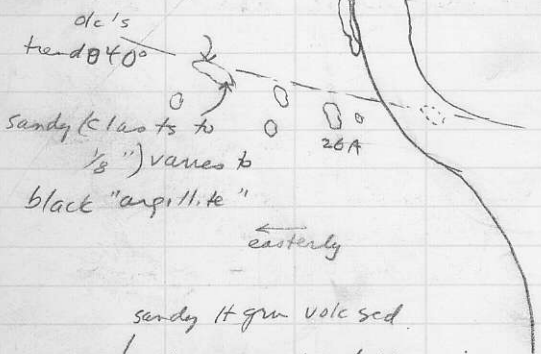 o/c's
trend 040°
sandy (clasts to
1/8") varies to
black "argillite"
26A
easterly
sandy lt grn volc sed.